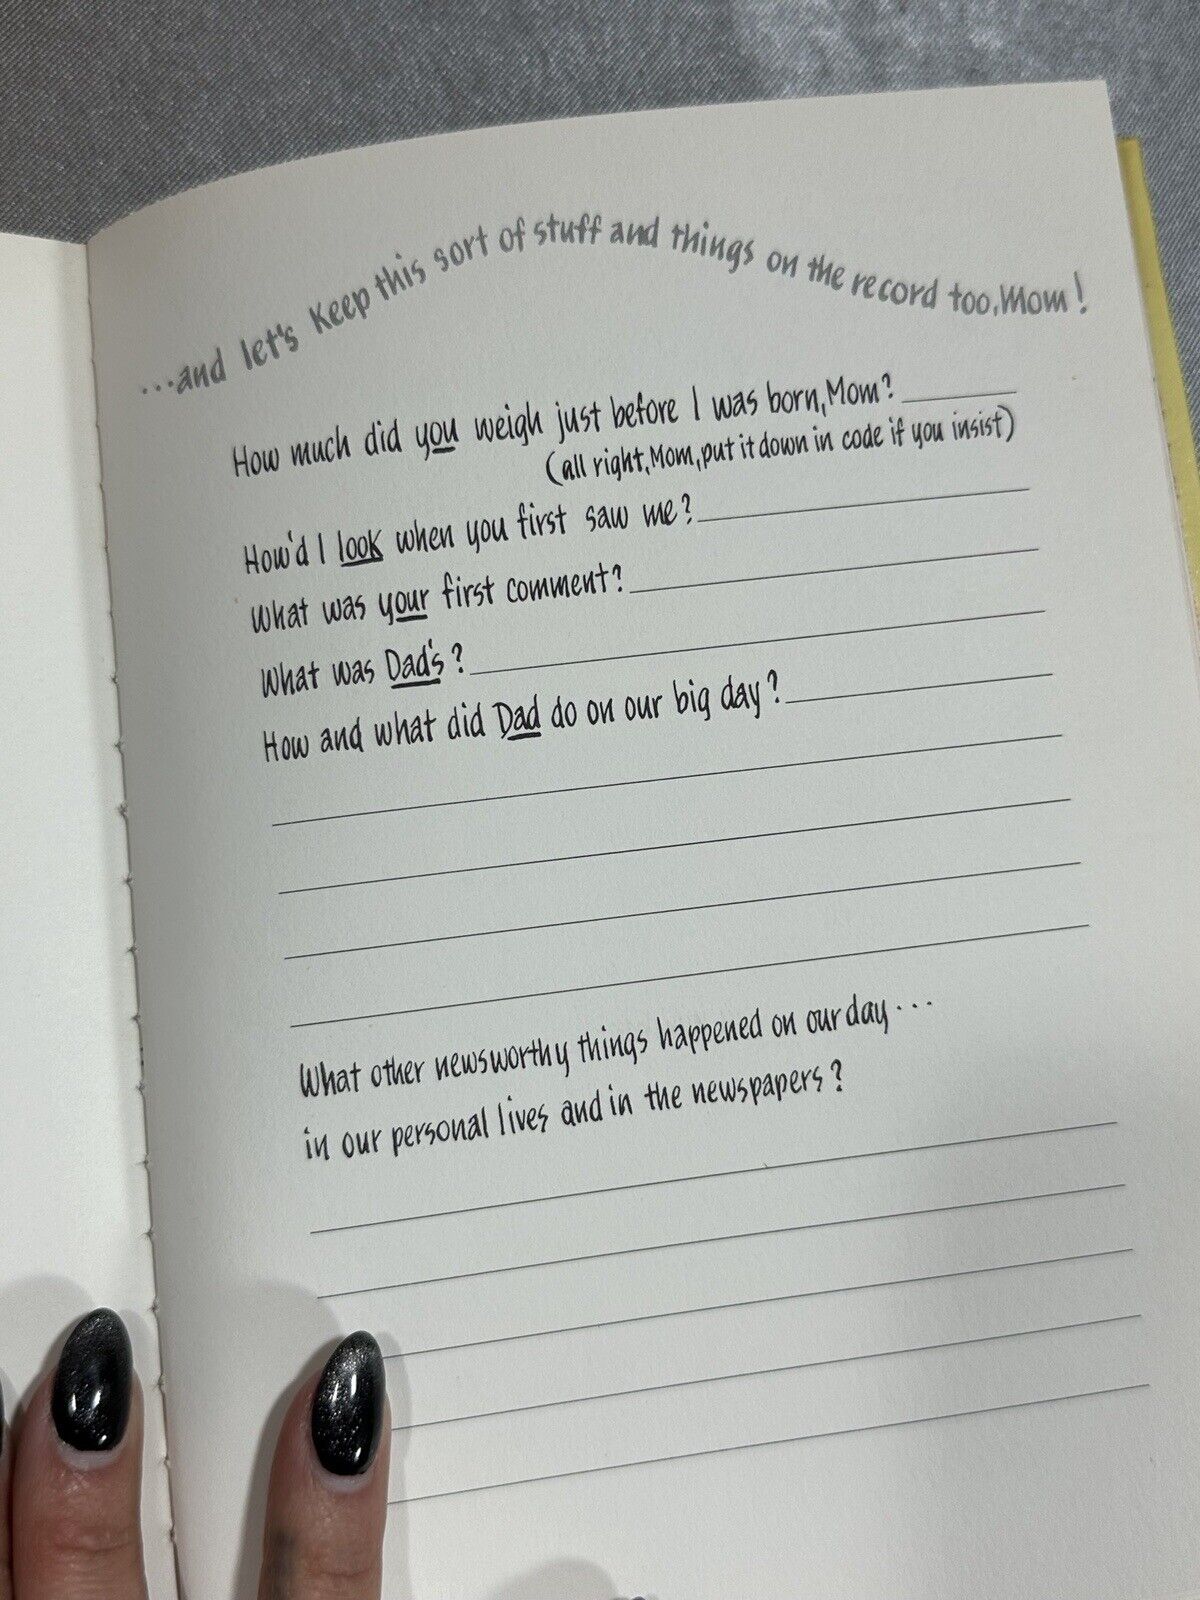 ...and let's keep this sort of stuff and things on the record too, Mom!
How much did you weigh just before I was born, Mom?
(all right, Mom, put it down in code if you insist)
How'd I look when you first saw me?
What was your first comment?
What was Dad's?
How and what did Dad do on our big day?
What other newsworthy things happened on our day...
in our personal lives and in the newspapers?